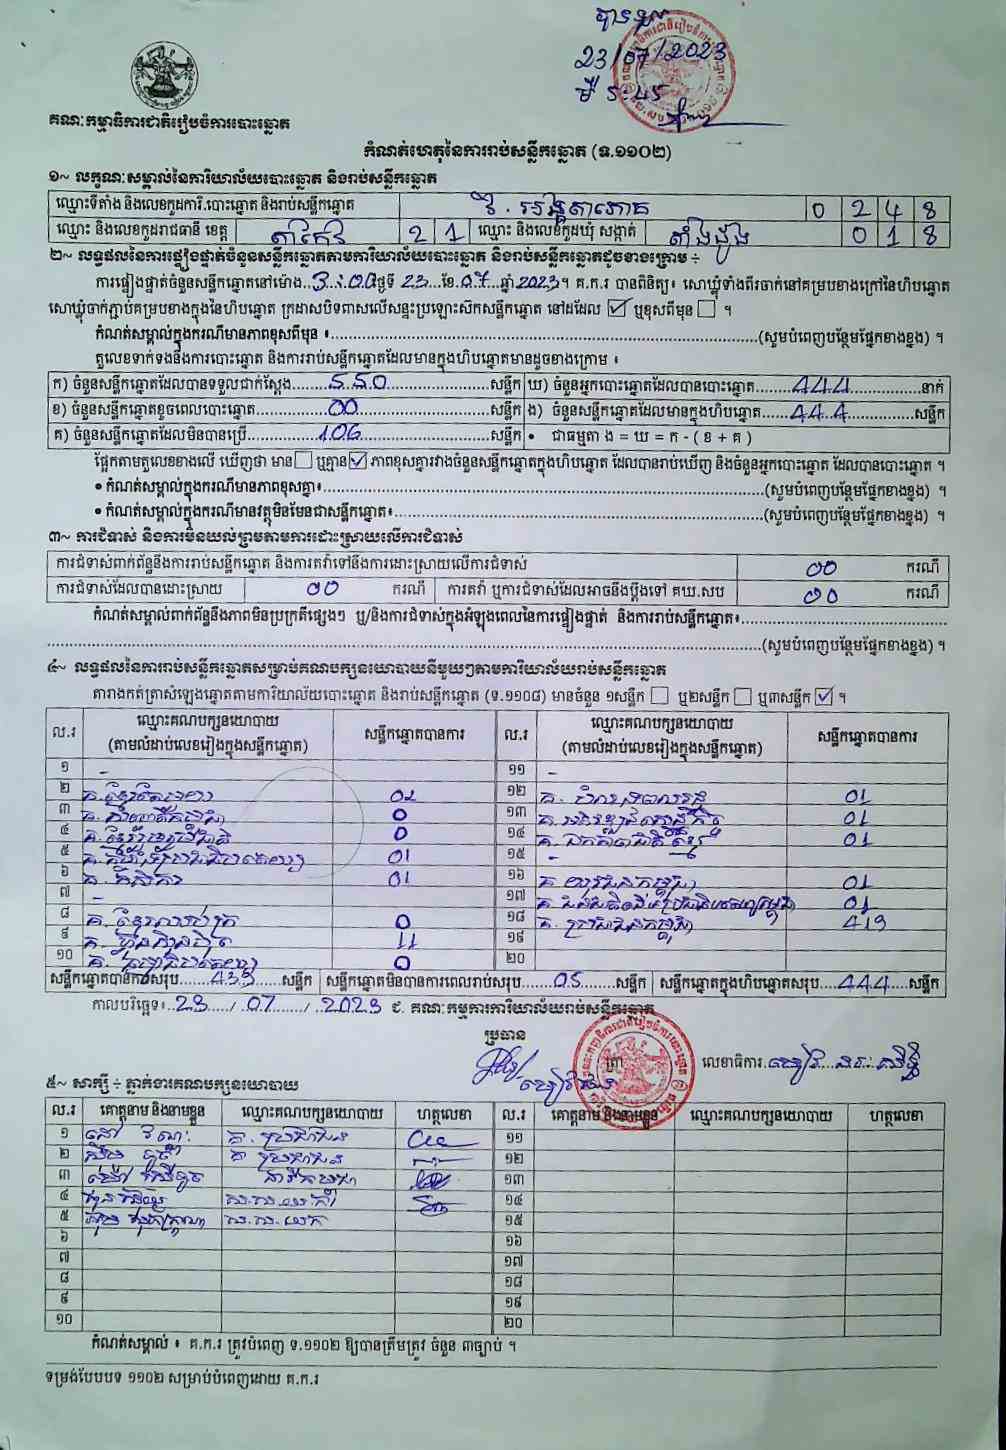 បានទទួល
23/07/2023
គណៈកម្មាធិការជាតិរៀបចំការបោះឆ្នោត
កំណត់ហេតុនៃការរាប់សន្លឹកឆ្នោត (ទ.១១០២)
១~ លក្ខណៈសម្គាល់នៃការិយាល័យបោះឆ្នោត និងរាប់សន្លឹកឆ្នោត
ឈ្មោះទីតាំង និងលេខកូដការិ.បោះឆ្នោត និងរាប់សន្លឹកឆ្នោត 0 2 4 8
ឈ្មោះ និងលេខកូដរាជធានី ខេត្ត តាកែវ 2 1 ឈ្មោះ និងលេខកូដឃុំ សង្កាត់ 0 1 8
២~ លទ្ធផលនៃការផ្ទៀងផ្ទាត់ចំនួនសន្លឹកឆ្នោតតាមការិយាល័យបោះឆ្នោត និងរាប់សន្លឹកឆ្នោតដូចខាងក្រោម ÷
ការផ្ទៀងផ្ទាត់ចំនួនសន្លឹកឆ្នោតនៅម៉ោង 3:00 ថ្ងៃទី 23 ខែ 07 ឆ្នាំ 2023។ គ.ក.រ បានពិនិត្យ៖ សោឃ្លុំទាំងពីរចាក់នៅគម្របខាងក្រៅនៃហិបឆ្នោត
សោឃ្លុំចាក់ភ្ជាប់គម្របខាងក្នុងនៃហិបឆ្នោត ក្រដាសបិទពាសលើសន្ទះប្រឡោះស៊កសន្លឹកឆ្នោត នៅដដែល ☑ ឬខុសពីមុន ☐ ។
កំណត់សម្គាល់ក្នុងករណីមានភាពខុសពីមុន ៖ (សូមបំពេញបន្ថែមផ្នែកខាងខ្នង) ។
តួលេខទាក់ទងនឹងការបោះឆ្នោត និងការរាប់សន្លឹកឆ្នោតដែលមានក្នុងហិបឆ្នោតមានដូចខាងក្រោម ៖
ក) ចំនួនសន្លឹកឆ្នោតដែលបានទទួលជាក់ស្តែង 550 សន្លឹក ឃ) ចំនួនអ្នកបោះឆ្នោតដែលបានបោះឆ្នោត 444 នាក់
ខ) ចំនួនសន្លឹកឆ្នោតខូចពេលបោះឆ្នោត 00 សន្លឹក ង) ចំនួនសន្លឹកឆ្នោតដែលមានក្នុងហិបឆ្នោត 444 សន្លឹក
គ) ចំនួនសន្លឹកឆ្នោតដែលមិនបានប្រើ 106 សន្លឹក • ជាធម្មតា ង = ឃ = ក - ( ខ + គ )
ផ្អែកតាមតួលេខខាងលើ ឃើញថា មាន ☐ ឬគ្មាន ☑ ភាពខុសគ្នារវាងចំនួនសន្លឹកឆ្នោតក្នុងហិបឆ្នោត ដែលបានរាប់ឃើញ និងចំនួនអ្នកបោះឆ្នោត ដែលបានបោះឆ្នោត ។
• កំណត់សម្គាល់ក្នុងករណីមានភាពខុសគ្នា៖ (សូមបំពេញបន្ថែមផ្នែកខាងខ្នង) ។
• កំណត់សម្គាល់ក្នុងករណីមានវត្ថុមិនមែនជាសន្លឹកឆ្នោត៖ (សូមបំពេញបន្ថែមផ្នែកខាងខ្នង) ។
៣~ ការជំទាស់ និងការមិនយល់ព្រមតាមការដោះស្រាយលើការជំទាស់
ការជំទាស់ពាក់ព័ន្ធនឹងការរាប់សន្លឹកឆ្នោត និងការតវ៉ាទៅនឹងការដោះស្រាយលើការជំទាស់ 00 ករណី
ការជំទាស់ដែលបានដោះស្រាយ 00 ករណី ការតវ៉ា ឬការជំទាស់ដែលអាចនឹងប្តឹងទៅ គឃ.សប 00 ករណី
កំណត់សម្គាល់ពាក់ព័ន្ធនឹងភាពមិនប្រក្រតីផ្សេងៗ ឬ/និងការជំទាស់ក្នុងអំឡុងពេលនៃការផ្ទៀងផ្ទាត់ និងការរាប់សន្លឹកឆ្នោត៖
(សូមបំពេញបន្ថែមផ្នែកខាងខ្នង) ។
៤~ លទ្ធផលនៃការរាប់សន្លឹកឆ្នោតសម្រាប់គណបក្សនយោបាយនីមួយៗតាមការិយាល័យរាប់សន្លឹកឆ្នោត
តារាងកត់ត្រាសំឡេងឆ្នោតតាមការិយាល័យបោះឆ្នោត និងរាប់សន្លឹកឆ្នោត (ទ.១១០៨) មានចំនួន ១សន្លឹក ☐ ឬ២សន្លឹក ☐ ឬ៣សន្លឹក ☑ ។
ល.រ ឈ្មោះគណបក្សនយោបាយ (តាមលំដាប់លេខរៀងក្នុងសន្លឹកឆ្នោត) សន្លឹកឆ្នោតបានការ ល.រ ឈ្មោះគណបក្សនយោបាយ (តាមលំដាប់លេខរៀងក្នុងសន្លឹកឆ្នោត) សន្លឹកឆ្នោតបានការ
១ - ១១ -
២ 02 ១២ 01
៣ 0 ១៣ 01
៤ 0 ១៤ 01
៥ 01 ១៥ -
៦ គ. កសិករ 01 ១៦ គ. យុវជនកម្ពុជា 01
៧ - ១៧ 01
៨ 0 ១៨ គ. ប្រជាជនកម្ពុជា 419
៩ គ. ហ៊្វុនស៊ិនប៉ិច 11 ១៩
១០ 0 ២០
សន្លឹកឆ្នោតបានការសរុប 439 សន្លឹក សន្លឹកឆ្នោតមិនបានការពេលរាប់សរុប 05 សន្លឹក សន្លឹកឆ្នោតក្នុងហិបឆ្នោតសរុប 444 សន្លឹក
កាលបរិច្ឆេទ៖ 23 / 07 / 2023 ជ. គណៈកម្មការការិយាល័យរាប់សន្លឹកឆ្នោត
ប្រធាន
ត្រា លេខាធិការ
៥~ សាក្សី ÷ ភ្នាក់ងារគណបក្សនយោបាយ
ល.រ គោត្តនាម និងនាមខ្លួន ឈ្មោះគណបក្សនយោបាយ ហត្ថលេខា ល.រ គោត្តនាម និងនាមខ្លួន ឈ្មោះគណបក្សនយោបាយ ហត្ថលេខា
១ គ. ប្រជាជន ១១
២ គ ប្រជាជន ១២
៣ ១៣
៤ ១៤
៥ ១៥
៦ ១៦
៧ ១៧
៨ ១៨
៩ ១៩
១០ ២០
កំណត់សម្គាល់ ៖ គ.ក.រ ត្រូវបំពេញ ទ.១១០២ ឱ្យបានត្រឹមត្រូវ ចំនួន ៣ច្បាប់ ។
ទម្រង់បែបបទ ១១០២ សម្រាប់បំពេញដោយ គ.ក.រ